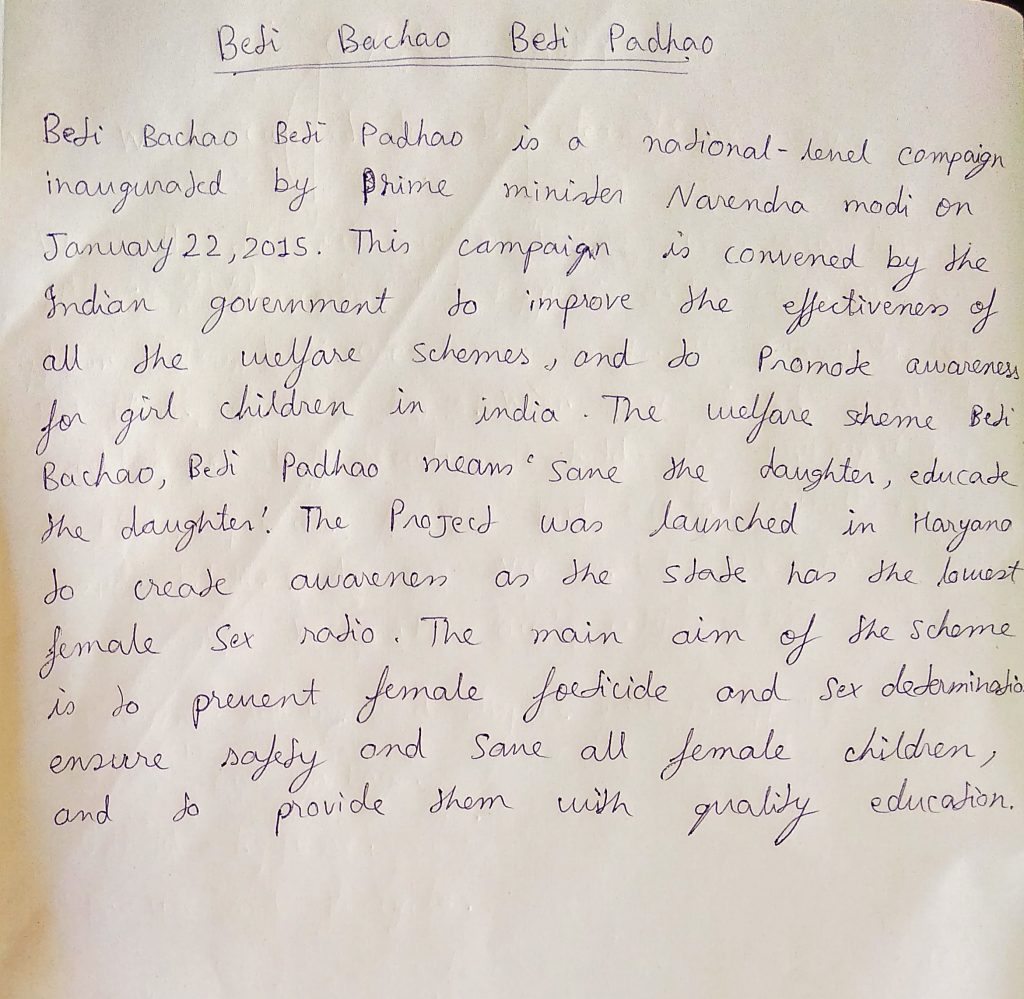 Beti Bachao Beti Padhao
Beti Bachao Beti Padhao is a national-level campaign
inaugurated by Prime minister Narendra modi on
January 22, 2015. This campaign is convened by the
Indian government to improve the effectiveness of
all the welfare schemes, and to Promote awareness
for girl children in india. The welfare scheme Beti
Bachao, Beti Padhao means 'Save the daughter, educate
the daughter'. The Project was launched in Haryana
to create awareness as the state has the lowest
female Sex ratio. The main aim of the scheme
is to prevent female foeticide and sex determinatio
ensure safety and Save all female children,
and to provide them with quality education.